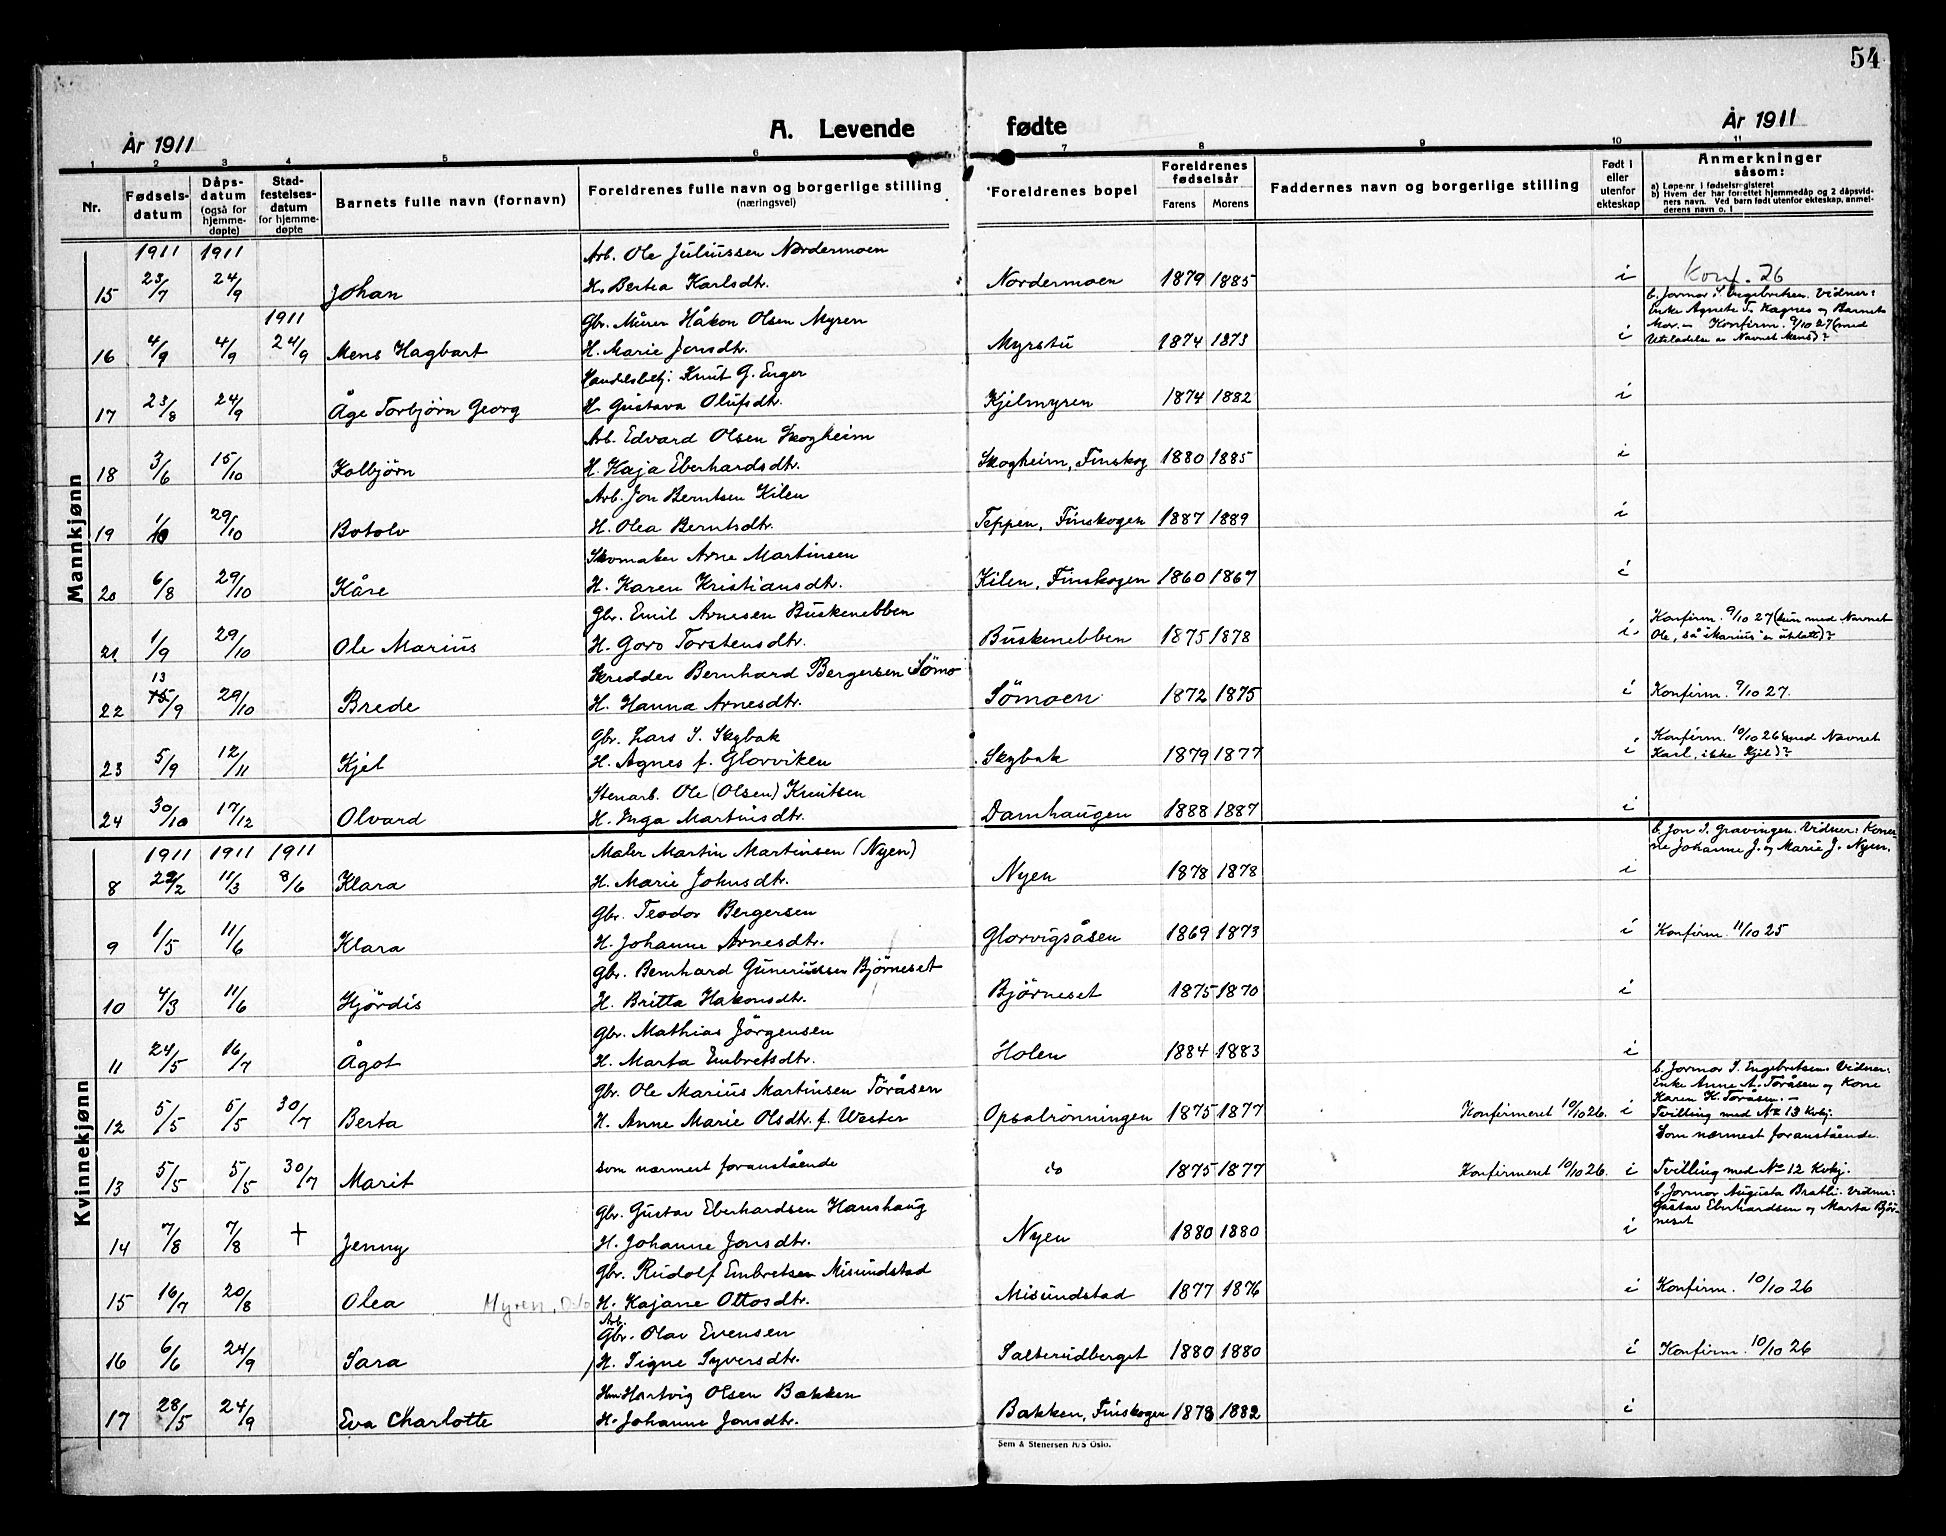 54
År 1911
A. Levende fødte
År 1911
1 2 3 4 5 6 7 8 9 10 11
Nr.
Fødselsdatum
Dåpsdatum (også for hjemmedøpte)
Stadfestelsesdatum for hjemmedøpte
Barnets fulle navn (fornavn)
Foreldrenes fulle navn og borgerlige stilling (næringsvei)
Foreldrenes bopel
Foreldrenes fødselsår
Farens Morens
Faddernes navn og borgerlige stilling
Født i eller utenfor ekteskap
Anmerkninger såsom:
a) Løpe-nr. i fødselsregisteret
b) Hvem der har forrettet hjemmedåp og 2 dåpsvidners navn. Ved barn født utenfor ekteskap, anmelderens navn o. l.
Mannkjønn
1911 1911 Arb. Ole Juliussen Nordermoen
15 23/7 24/9 Johan H. Bertea Karlsdtr. Nordermoen 1879 1885 i Konf. 26
1911 Gbr. Murer Håkon Olsen Myren b. Jormor S. Engebritsen. Vidner:
Enke Agnete T. Kagnes og Barnets
16 4/9 4/9 24/9 Mens Hagbart H. Marie Jonsdtr. Myrstu 1874 1873 i Mor. — Konfirm. 9/10 27 (med
Uteladelse av Navnet Mens)?
Handelsbetj. Knut G. Enger
17 23/8 24/9 Åge Torbjørn Georg H. Gustava Olufsdtr. Kjelmyren 1874 1882 i
Arb. Edvard Olsen Skogheim
18 3/6 15/10 Kolbjørn H. Kaja Eberhardsdtr. Skogheim, Finskog 1880 1885 i
Arb. Jon Berntsen Kilen
19 1/10 29/10 Botolv H. Olea Berntsdtr. Teppen, Finskogen 1887 1889 i
Skomaker Arne Martinsen
20 6/8 29/10 Kåre H. Karen Kristiansdtr. Kilen, Finskogen 1860 1867 i
Gbr. Emil Arnesen Buskenebben Konfirm. 9/10 27 (kun med Navnet
21 1/9 29/10 Ole Marius H. Goro Torstensdtr. Buskenebben 1875 1878 i. Ole, så "Marius" er utelatt)?
13 Skredder Bernhard Bergersen Sömo
22 15/9 29/10 Brede H. Hanna Arnesdtr. Sömoen 1872 1875 i Konfirm. 9/10 27.
Gbr. Lars S. Skybak Konfirm. 10/10 26 (med Navnet
23 5/9 12/11 Kjel H. Agnes f. Glorviken Skybak 1879 1877 i Karl, ikke Kjel)?
Stenarb. Ole (Olsen) Knutsen
24 30/10 17/12 Olvard H. Inga Martinsdtr. Damhaugen 1888 1887 i
Kvinnekjønn
1911 1911 1911 Maler Martin Martinsen (Nyen) b. Jon J. Gravingen. Vidner: Kone-
ne Johanne J. og Marie J. Nyen.
8 22/2 11/3 8/6 Klara H. Marie Johnsdtr. Nyen 1878 1878 i
Gbr. Teodor Bergersen
9 1/5 11/6 Klara H. Johanne Arnesdtr. Glorvigsåsen 1869 1873 i Konfirm. 11/10 25
Gbr. Bernhard Gunerussen Björneset
10 4/3 11/6 Hjördis H. Britta Hakonsdtr. Björneset 1875 1870 i
Gbr. Mathias Jörgensen
11 24/5 16/7 Ågot H. Marta Embretsdtr. Holen 1884 1883 i
Gbr. Ole Marius Martinsen Töråsen b. Jormor S. Engebretsen. Vidner:
Enke Anne A. Töråsen og Kone
Karen K. Töråsen. —
12 5/5 5/5 30/7 Berta H. Anne Marie Olsdtr. f. Wester Opsalrönningen 1875 1877 Konfirmeret 10/10 26. i Tvilling med No 13 Kvkj.
som nærmest foranstående Som nærmest foranstående.
13 5/5 5/5 30/7 Marit do 1875 1877 Konfirmeret 10/10 26. i Tvilling med No 12 Kvkj.
Gbr. Gustav Eberhardsen Hanshaug b. Jormor Augusta Bratli. Vidner:
Gustav Eberhardsen og Marta Björ-
14 7/8 7/8 + Jenny H. Johanne Jonsdtr. Nyen 1880 1880 i neset
Gbr. Rudolf Embretsen Misundstad
15 16/7 20/8 Olea Myren, H. Kajane Ottosdtr. Misundstad 1877 1876 i Konfirm. 10/10 26
Arb.
Gbr. Olav Evensen
16 6/6 24/9 Sara H. Signe Syversdtr. Salterudberget 1880 1880 i Konfirm. 10/10 26
Hm Hartvig Olsen Bakken
17 28/5 24/9 Eva Charlotte H. Johanne Jonsdtr. Bakken, Finskogen 1878 1882 i
Sem & Stenersen A/S Oslo.